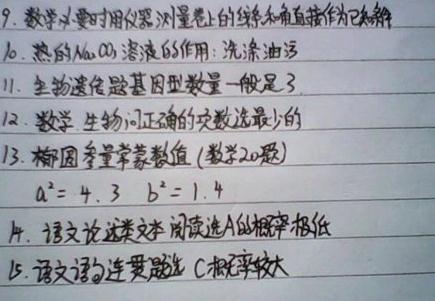 9. 数学必要时用仪器测量卷上的线条和角直接作为已知条件
10. 热的Na₂CO₃溶液的作用：洗涤油污
11. 生物遗传题基因型数量一般是3
12. 数学.生物问正确的项数选最少的
13. 椭圆参量常蒙数值(数学20题)
a²=4.3 b²=1.4
14. 语文论述类文本阅读选A的概率极低
15. 语文语句连贯题选C概率较大